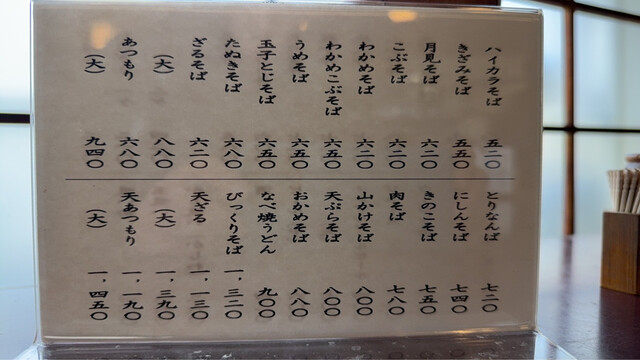 ハイカラそば 五二〇
きざみそば 五五〇
月見そば 六二〇
こぶそば 六二〇
わかめそば 六二〇
わかめこぶそば 六五〇
うめそば 六五〇
玉子とじそば 六五〇
たぬきそば 六八〇
ざるそば 六二〇
(大) 八八〇
あつもり 六八〇
(大) 九四〇
とりなんば 七二〇
にしんそば 七四〇
きのこそば 七五〇
肉そば 七八〇
山かけそば 八〇〇
天ぷらそば 八〇〇
おかめそば 八八〇
なべ焼うどん 九〇〇
びっくりそば 一,三二〇
天ざる 一,一三〇
(大) 一,三九〇
天あつもり 一,一九〇
(大) 一,四五〇